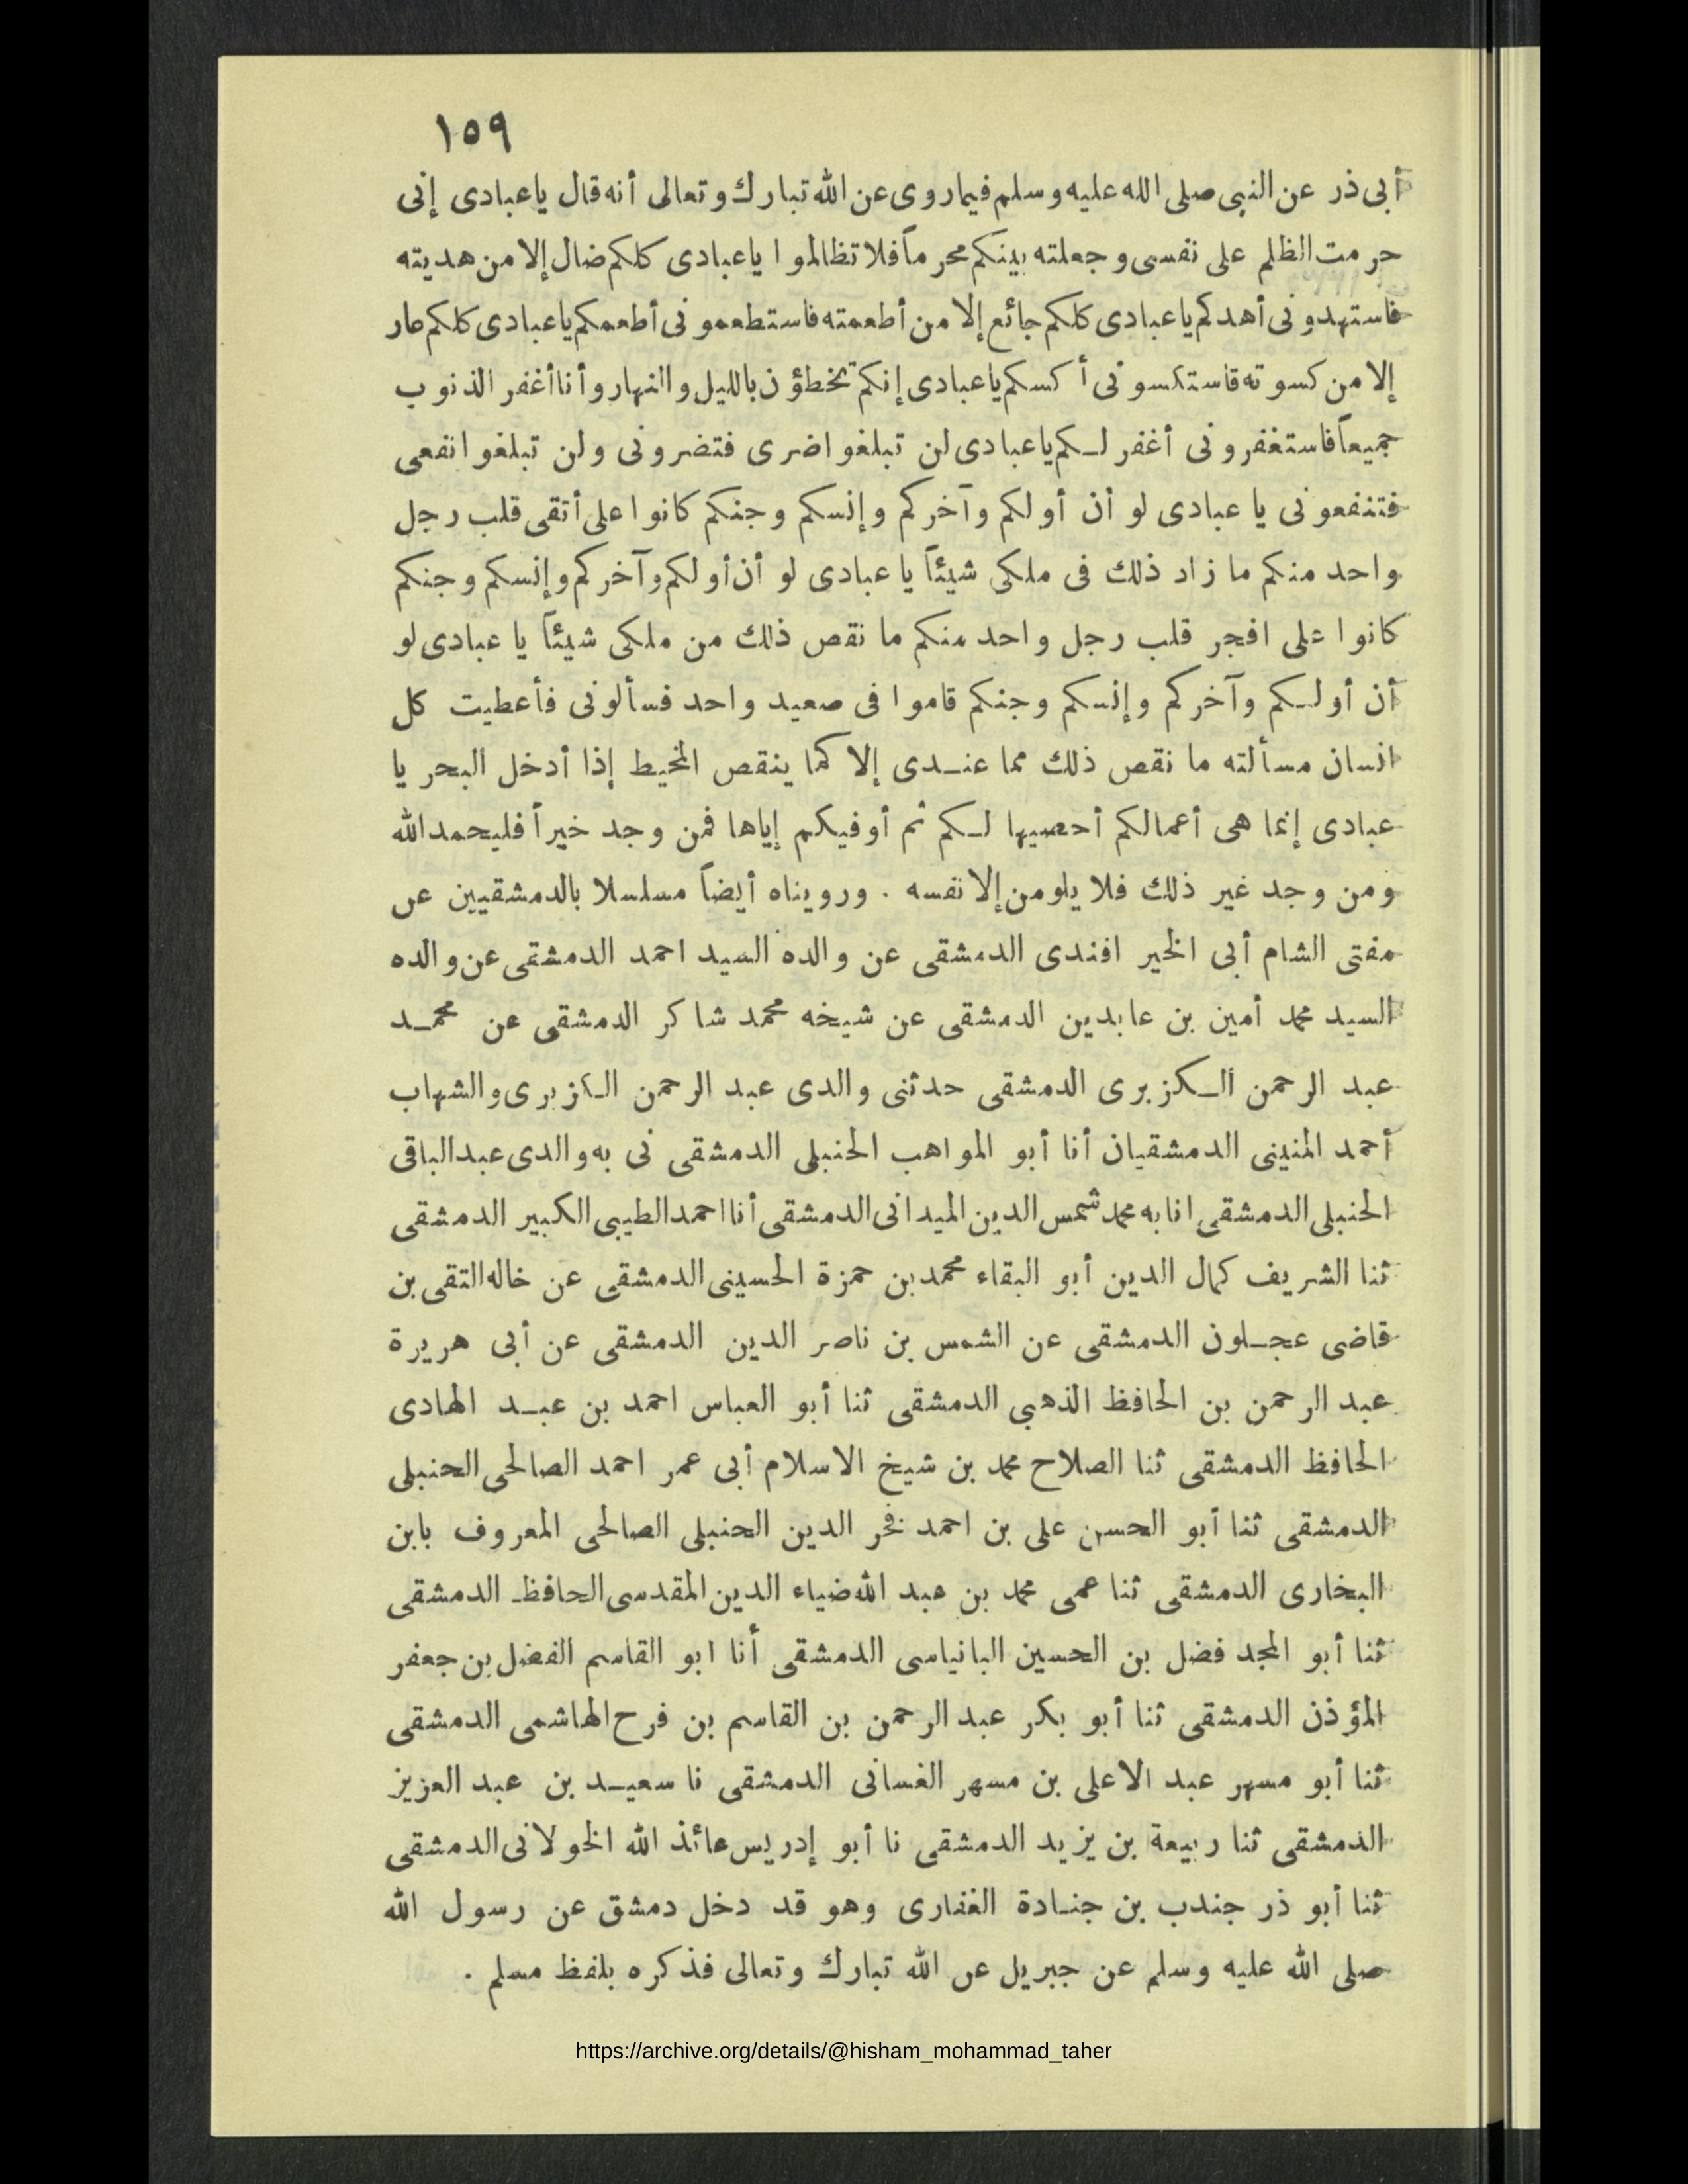 ١٥٩
أبى ذر عن النبى صلى الله عليه وسلم فيما روى عن الله تبارك وتعالى أنه قال ياعبادى إنى
حرمت الظلم على نفسى وجعلته بينكم محرماً فلا تظالموا ياعبادى كلكم ضال إلا من هديته
فاستهدونى أهدكم ياعبادى كلكم جائع إلا من أطعمته فاستطعمونى أطعمكم ياعبادى كلكم عار
إلا من كسوته فاستكسونى أكسكم ياعبادى إنكم تخطؤن بالليل والنهار وأنا أغفر الذنوب
جميعاً فاستغفرونى أغفر لكم ياعبادى لن تبلغوا ضرى فتضرونى ولن تبلغوا نفعى
فتنفعونى يا عبادى لو أن أولكم وآخركم وإنسكم وجنكم كانوا على أتقى قلب رجل
واحد منكم ما زاد ذلك فى ملكى شيئاً يا عبادى لو أن أولكم وآخركم وإنسكم وجنكم
كانوا على افجر قلب رجل واحد منكم ما نقص ذلك من ملكى شيئاً يا عبادى لو
أن أولكم وآخركم وإنسكم وجنكم قاموا فى صعيد واحد فسألونى فأعطيت كل
انسان مسألته ما نقص ذلك مما عندى إلا كما ينقص المخيط إذا أدخل البحر يا
عبادى إنما هى أعمالكم أحصيها لكم ثم أوفيكم إياها فمن وجد خيراً فليحمد الله
ومن وجد غير ذلك فلا يلومن إلا نفسه . ورويناه أيضاً مسلسلا بالدمشقيين عن
مفتى الشام أبى الخير افندى الدمشقى عن والده السيد احمد الدمشقى عن والده
السيد محمد أمين بن عابدين الدمشقى عن شيخه محمد شاكر الدمشقى عن محمد
عبد الرحمن الكزبرى الدمشقى حدثنى والدى عبد الرحمن الكزبرى والشهاب
أحمد المنينى الدمشقيان أنا أبو المواهب الحنبلى الدمشقى نى به والدى عبد الباقى
الحنبلى الدمشقى انا به محمد شمس الدين الميدانى الدمشقى أنا احمد الطيبى الكبير الدمشقى
ثنا الشريف كمال الدين أبو البقاء محمد بن حمزة الحسينى الدمشقى عن خاله التقى بن
قاضى عجلون الدمشقى عن الشمس بن ناصر الدين الدمشقى عن أبى هريرة
عبد الرحمن بن الحافظ الذهبي الدمشقى ثنا أبو العباس احمد بن عبد الهادى
الحافظ الدمشقى ثنا الصلاح محمد بن شيخ الاسلام أبى عمر احمد الصالحى الحنبلى
الدمشقى ثنا أبو الحسن على بن احمد فخر الدين الحنبلى الصالحى المعروف بابن
البخارى الدمشقى ثنا عمى محمد بن عبد الله ضياء الدين المقدسى الحافظ الدمشقى
ثنا أبو المجد فضل بن الحسين البانياسى الدمشقى أنا ابو القاسم الفضل بن جعفر
المؤذن الدمشقى ثنا أبو بكر عبد الرحمن بن القاسم بن فرح الهاشمى الدمشقى
ثنا أبو مسهر عبد الاعلى بن مسهر الغسانى الدمشقى نا سعيد بن عبد العزيز
الدمشقى ثنا ربيعة بن يزيد الدمشقى نا أبو إدريس عائذ الله الخولانى الدمشقى
ثنا أبو ذر جندب بن جنادة الغفارى وهو قد دخل دمشق عن رسول الله
صلى الله عليه وسلم عن جبريل عن الله تبارك وتعالى فذكره بلفظ مسلم .
https://archive.org/details/@hisham_mohammad_taher